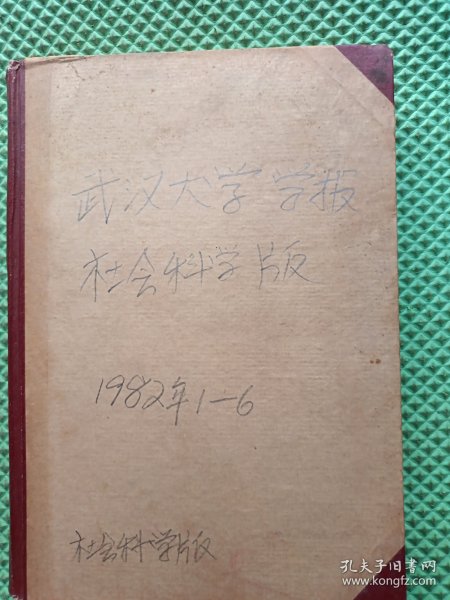 武汉大学学报
社会科学版
1982年1-6
社会科学版
孔夫子旧书网
www.kongfz.com